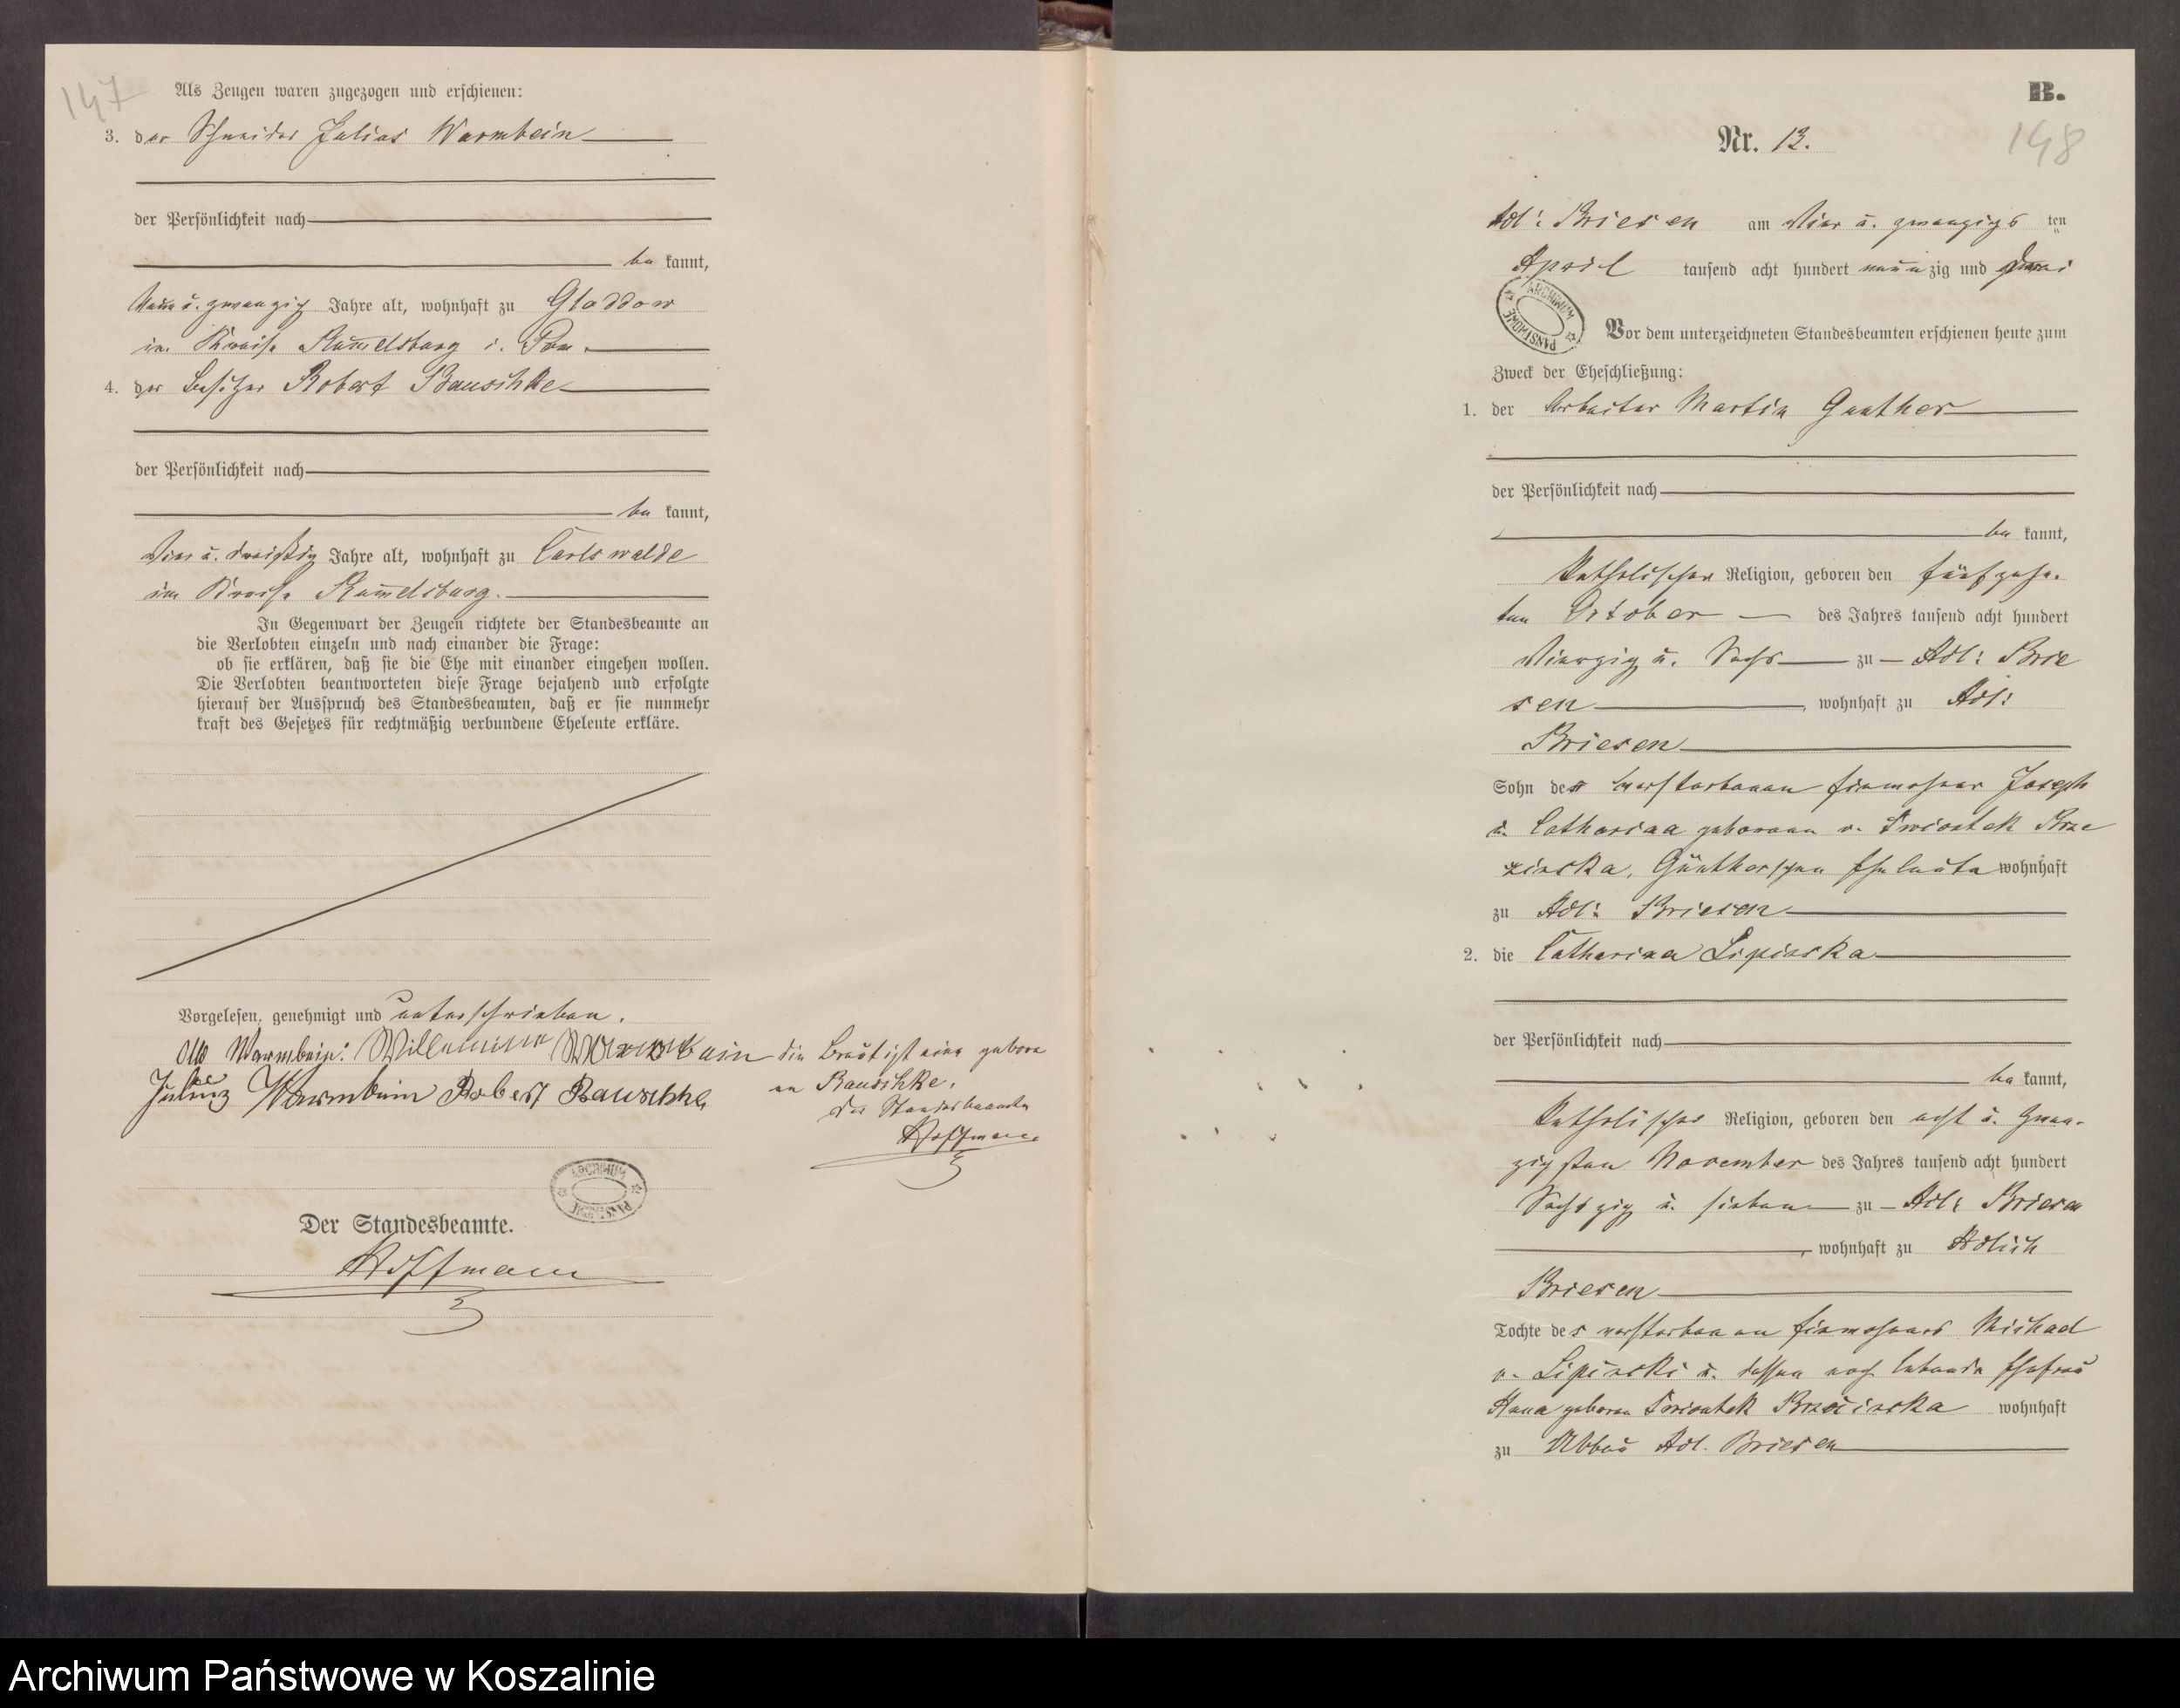 147
Als Zeugen waren zugezogen und erschienen:
3. der Schneider Julius Warmbein
der Persönlichkeit nach
be kannt,
Neun u. zwanzig Jahre alt, wohnhaft zu Gloddow
im Kreise Rummelsburg i. Pom.
4. der Besitzer Robert Bauschke
der Persönlichkeit nach
be kannt,
Vier u. dreißig Jahre alt, wohnhaft zu Carlswalde
im Kreise Rummelsburg.
In Gegenwart der Zeugen richtete der Standesbeamte an
die Verlobten einzeln und nach einander die Frage:
ob sie erklären, daß sie die Ehe mit einander eingehen wollen.
Die Verlobten beantworteten diese Frage bejahend und erfolgte
hierauf der Ausspruch des Standesbeamten, daß er sie nunmehr
kraft des Gesetzes für rechtmäßig verbundene Eheleute erkläre.
Vorgelesen, genehmigt und unterschrieben.
Otto Warmbein. Willemine Warmbein die Braut ist eine gebore
ne Bauschke.
Julius Warmbein Robert Bauschke
Der Standesbeamte
Hoffmann
ARCHIWUM PAŃSTWOWE
Der Standesbeamte.
Hoffmann
B.
Nr. 13.
148
Adl: Briesen am Vier u. zwanzigs ten
April tausend acht hundert neunzig und drei
ARCHIWUM PAŃSTWOWE
Vor dem unterzeichneten Standesbeamten erschienen heute zum
Zweck der Eheschließung:
1. der Arbeiter Martin Gunther
der Persönlichkeit nach
be kannt,
Katholischer Religion, geboren den fünfzehn
ten October des Jahres tausend acht hundert
Vierzig u. Sechs zu Adl: Brie
sen, wohnhaft zu Adl:
Briesen
Sohn der verstorbenen Einwohner Joseph
u. Catharina geborenen v. Swiontek Brze
zinska, Güntherschen Eheleute wohnhaft
zu Adl: Briesen
2. die Catharina Lipinska
der Persönlichkeit nach
be kannt,
Katholischer Religion, geboren den acht u. zwan-
zigsten November des Jahres tausend acht hundert
Sechszig u. sieben zu Adl: Briesen
, wohnhaft zu Adlich
Briesen
Tochte des verstorbenen Einwohners Michael
v. Lipinski u. dessen noch lebende Ehefrau
Anna geboren Swiontek Brzezinska wohnhaft
zu Abbau Adl. Briesen
Archiwum Państwowe w Koszalinie